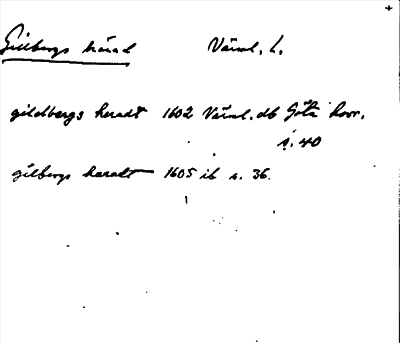 Gillbergs härad Värml. L.
gildbergs heradt 1602 Värml. db Göta hovr.
s. 40
gilbergs haradt 1605 ib s. 36.